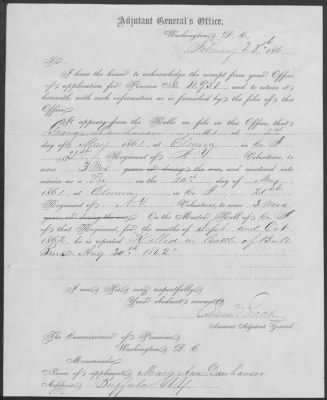 Adjutant General's Office,
Washington, D. C.
February 186
Sir:
I have the honor to acknowledge the receipt from your Office
of application for Pension No. and to return it
herewith, with such information as is furnished by the files of this
Office.
It appears from the Rolls on file in this Office, that
George enrolled at
day of May 1861 at Elmira in Co. F
21st Regiment of N.Y. Volunteers, to serve
3 Mos years, or during the war, and mustered into
service as a on the 20th day of
1861 at Elmira in Co. F 21st
Regiment of N.Y. Volunteers, to serve 3 Mos
years, or during the war. On the Muster Roll of Co. F
of that Regiment, for the months of Sept and Oct
1862 he is reported Killed in Battle of Bull
Run Aug 30th 1862
I am Sir, very respectfully,
Your obedient servant,
Assistant Adjutant General.
The Commissioner of Pensions,
Washington, D. C.
Memoranda:
Name of applicant, Mary Ann
Address, Buffalo N.Y.